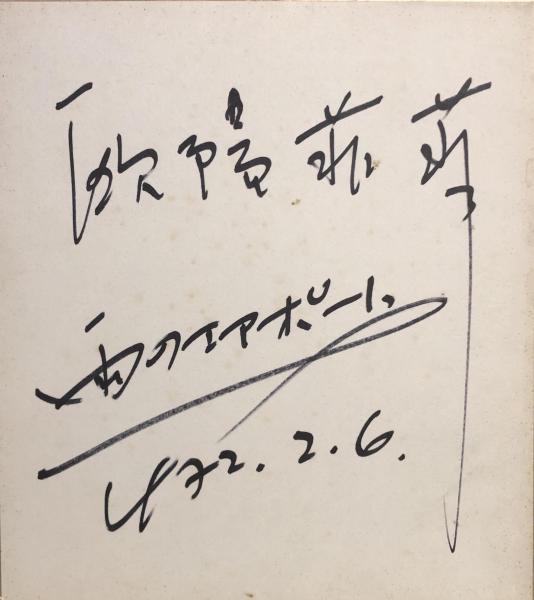 欧陽菲菲
雨のエアポート
'72.2.6.